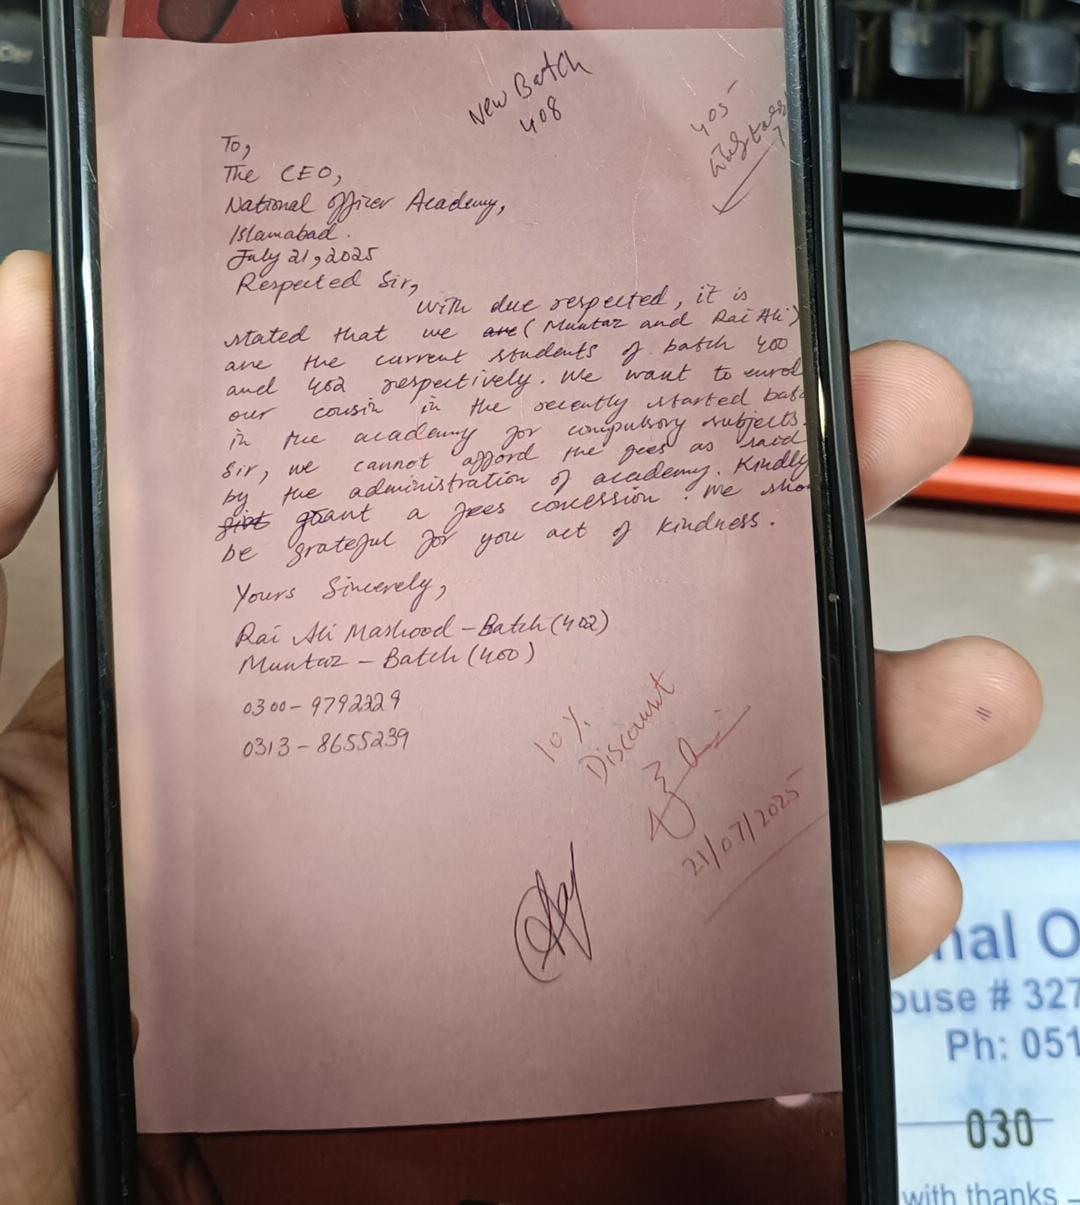 New Batch
408
405
To,
The CEO,
National Officer Academy,
Islamabad.
July 21, 2025
Respected Sir,
with due respected, it is
stated that we are (Mumtaz and Rai Ali)
are the current students of batch 400
and 402 respectively. We want to enrol
our cousin in the recently started batc
in the academy for compulsory subjects.
Sir, we cannot afford the fees as said
by the administration of academy. Kindly
grant a fees concession. We sho
be grateful for you act of kindness.
Yours Sincerely,
Rai Ali Mashood - Batch (402)
Mumtaz - Batch (400)
0300-9792229
0313-8655239
10%
Discount
21/07/2025
nal O
ouse # 327
Ph: 051
030
with thanks -